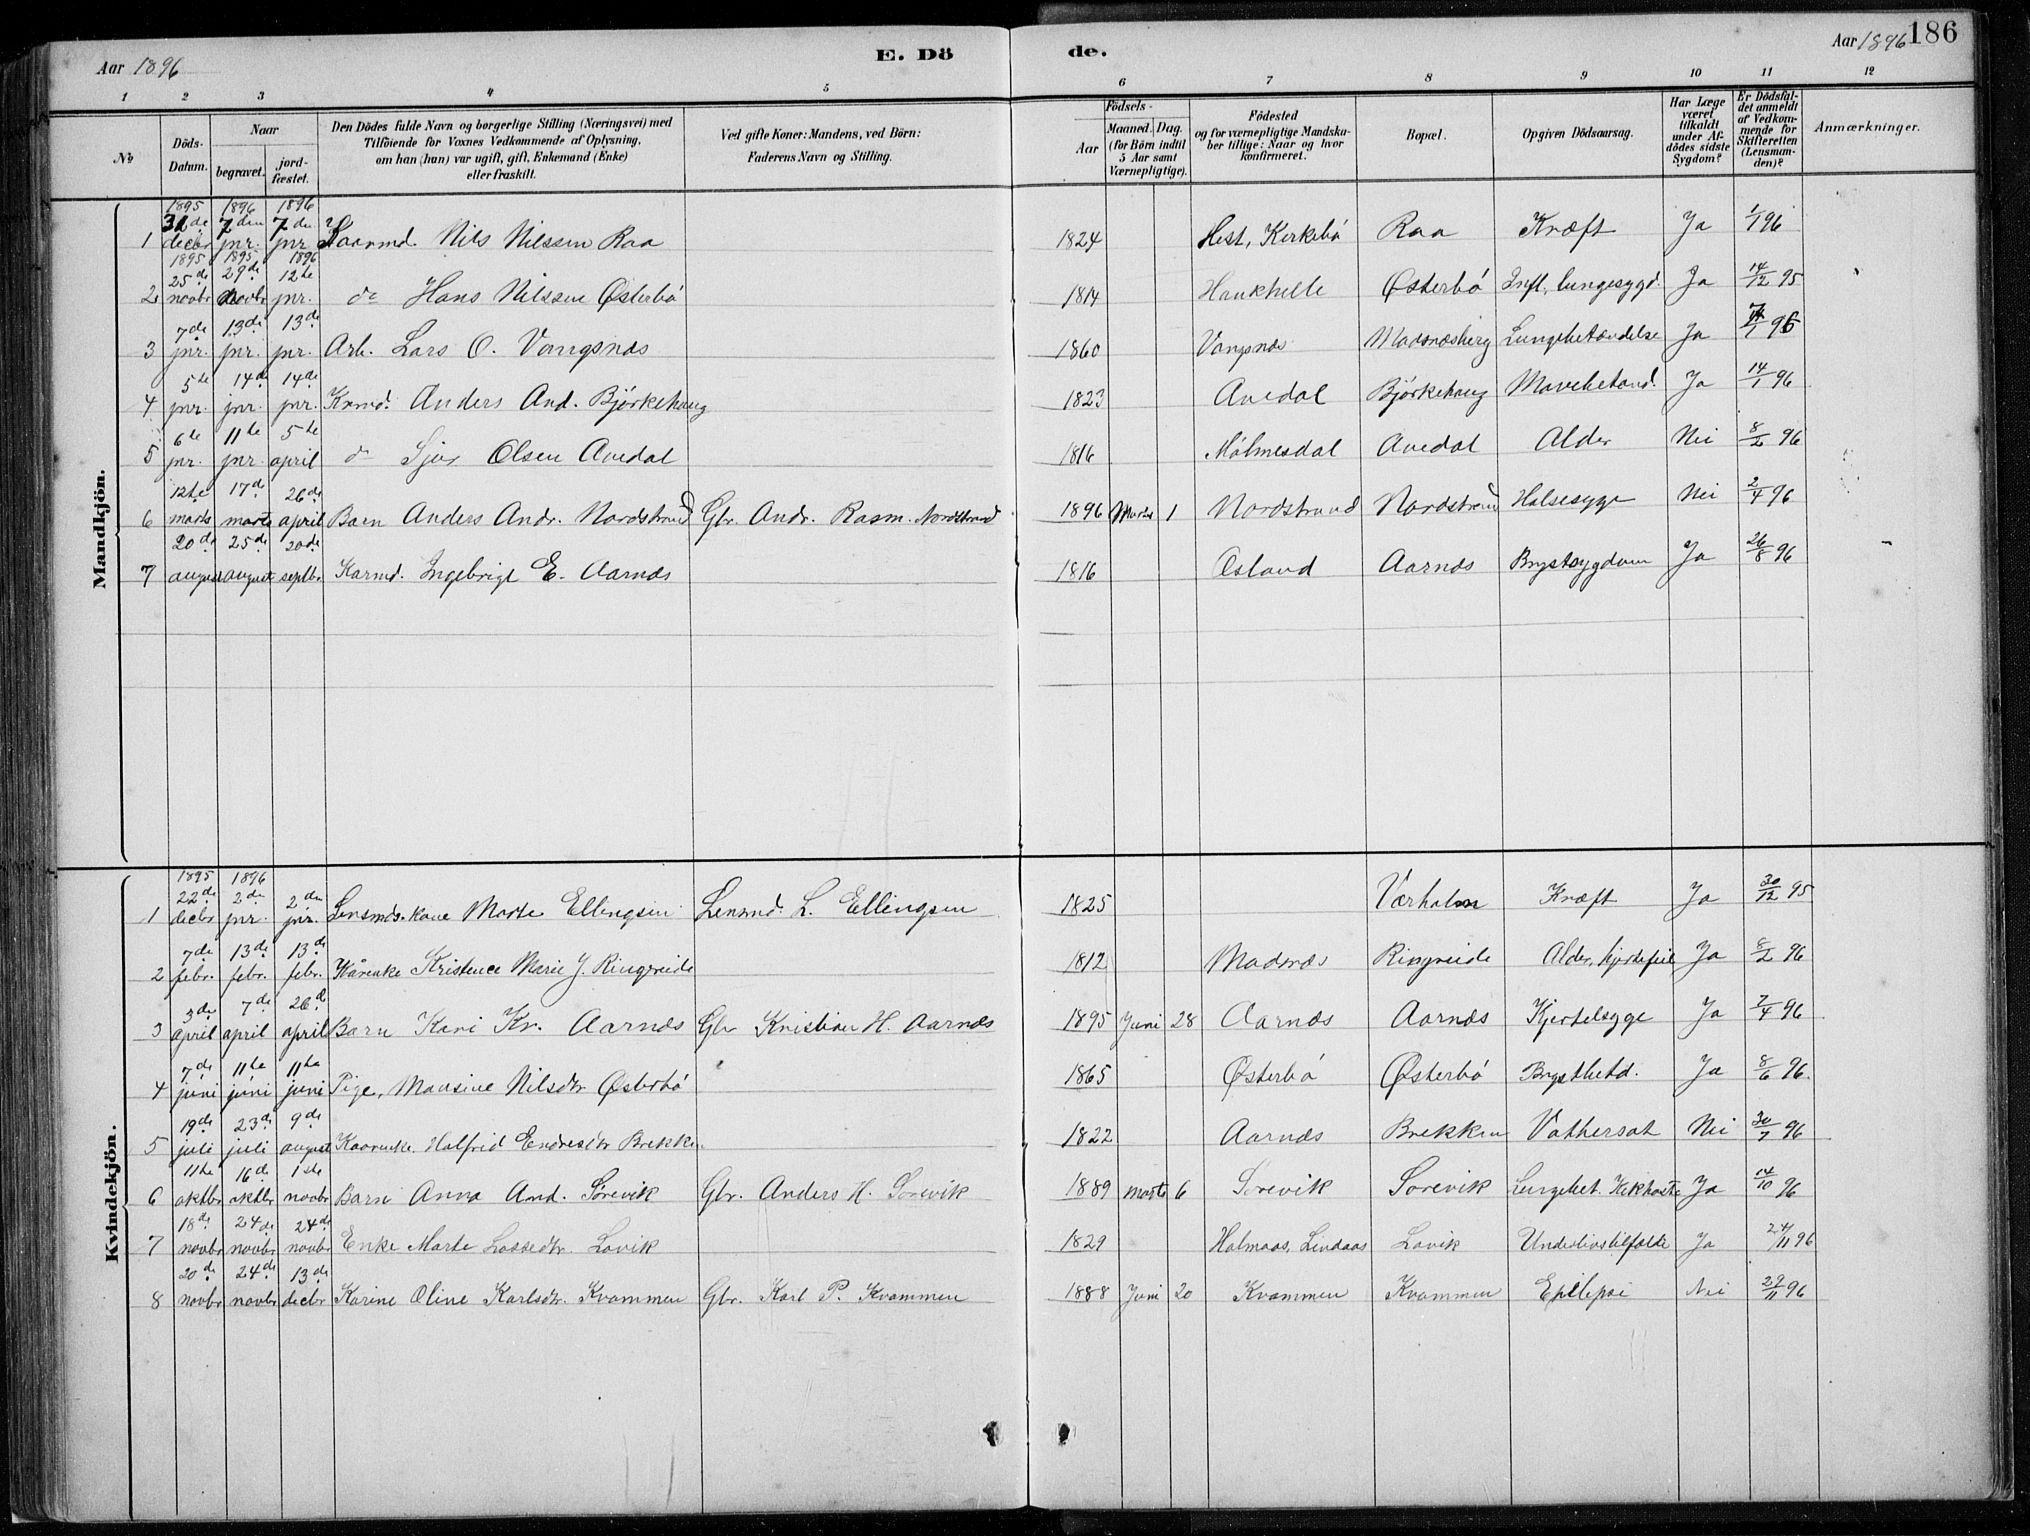 Aar 1896 E. Dö de. Aar 1896 186
1 2 3 4 5 6 7 8 9 10 11 12
No Döds-Datum. Naar begravet. jordfæstet. Den Dödes fulde Navn og borgerlige Stilling (Næringsvei) med Tilföiende for Voxnes Vedkommende af Oplysning, om han (hun) var ugift, gift, Enkemand (Enke) eller fraskilt. Ved gifte Koner: Mandens, ved Börn: Faderens Navn og Stilling. Födsels- Aar Maaned. Dag. (for Börn indtil 5 Aar samt Værnepligtige). Födested og for værnepligtige Mandskaber tillige: Naar og hvor konfirmeret. Bopæl. Opgiven Dödsaarsag. Har Læge været tilkaldt under Afdödes sidste Sygdom? Er Dödsfaldet anmeldt af Vedkommende for Skifteretten (Lensmanden)? Anmærkninger.
Mandkjön.
1895 1896 1896
1 31de decbr 7den jnr. 7de jnr Nils Nilssen Raa 1824 Hest, Kirkebö Raa Kræft Ja 1/1 96
1895 1895 1896
2 25de novbr 29de novbr 12te jnr. do Hans Nilssen Østerbö 1814 Østerbö Infl, lungesygd. Ja 14/12 95
3 7de jnr. 13de jnr. 13de jnr. Arb. Lars O. Vangsnæs 1860 Vangsnæs Madsnæsberg Lungebetændelse Ja 96
4 5te jnr. 14de jnr. 14de jnr. Kaarmd. Anders And. Björkehaug 1823 Avedal Björkehaug Mavebetænd. Ja 14/1 96
5 6te jnr. 11te jnr. 5te april do Sjur Olsen Avedal 1816 Mölmesdal Avedal Alder Nei 8/2 96
6 12te marts 17de marts 26de april Barn Anders Andr. Nordstrand Gbr. Andr. Rasm. Nordstrand 1896 Marts 1 Nordstrand Nordstrand Halssyge Nei 2/4 96
7 20de august 25de august 20de septbr. Karmd. Ingebrigt E. Aarnæs 1816 Osland Aarnæs Brystsygdom Ja 26/8 96
Kvindekjön.
1895 1896
1 22de decbr 2den jnr. 2den jnr. Lensmds.kone Marte Ellingsen Lensmd. L. Ellingsen 1825 Værholm Kræft Ja 30/12 95
2 7de febr. 13de febr. 13de febr. Kårenke Kristence Marie J. Ringereide 1812 Madsnæs Ringereide Alder, hjertefeil Ja 8/2 96
3 3die april 7de april 26de april Barn Kari Kr. Aarnæs Gbr Kristian H. Aarnæs 1895 Juni 28 Aarnæs Aarnæs Kjertelsyge Ja 7/4 96
4 7de juni 11te juni 11te juni Pige, Mansine Nilsdtr Østerbö 1865 Østerbö Østerbö Brystbetd. Ja 8/6 96.
5 19de juli 23de juli 9de august Kaarenke. Halfrid Endresdtr Brekke 1822 Aarnæs Brekken Vathersot Nei 30/7 96
6 11te oktbr 16de oktbr 1ste novbr Barn Anna And. Sörevik Gbr. Anders H. Sörevik 1889 marts 6 Sörevik Sörevik Lungebet. Kikhoste Ja 14/10 96
7 18de novbr 24de novbr 24de novbr Enke Marte Lassedtr. Lavik 1829 Halmaas, Lindaas Lavik Underlivstilfælde Ja 24/11 96
8 20de novbr 24de novbr 13de decbr Karine Oline Karlsdtr. Kvammen Gbr. Karl P. Kvammen 1888 Juni 20 Kvammen Kvammen Epilepsi Nei 29/11 96